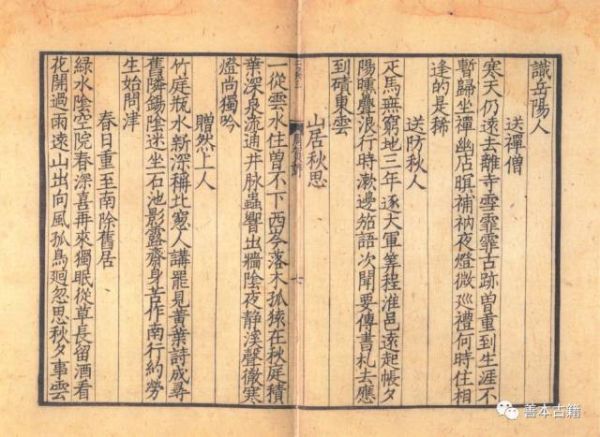 識岳陽人
送禪僧
寒天仍遠去離寺雪霏霏古跡曽重到生涯不
暫歸坐禪幽店暝補衲夜燈微巡禮何時住相
逢的是稀
送防秋人
疋馬無窮地三年逐大軍筭程淮邑遠起帳夕
陽曛疊浪行時漱邊笳語次聞要傳書札去應
到磧東雲
山居秋思
一從雲水住曽不下西岑落木孤猿在秋庭積
葉深泉流通井脉蟲響出牆陰夜静溪聲徹寒
燈尚獨吟
贈然上人
竹庭瓶水新深稱北窻人講罷見黄葉詩成尋
舊隣錫陰迷坐石池影露齋身苦作南行約勞
生始問津
春日重至南除舊居
緑水陰空院春深喜再來獨眠從草長留酒看
花開過雨遠山出向風孤鳥廻忽思秋夕事雲
善本古籍